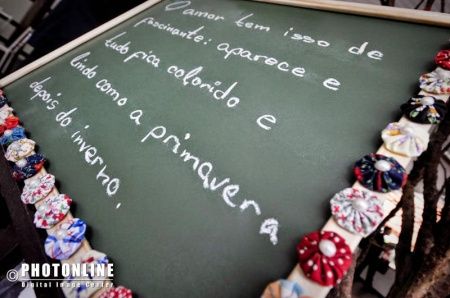 O amor tem isso de
fascinante: aparece e
tudo fica colorido e
lindo como a primavera
depois do inverno.
© PHOTONLINE
Digital Image Center